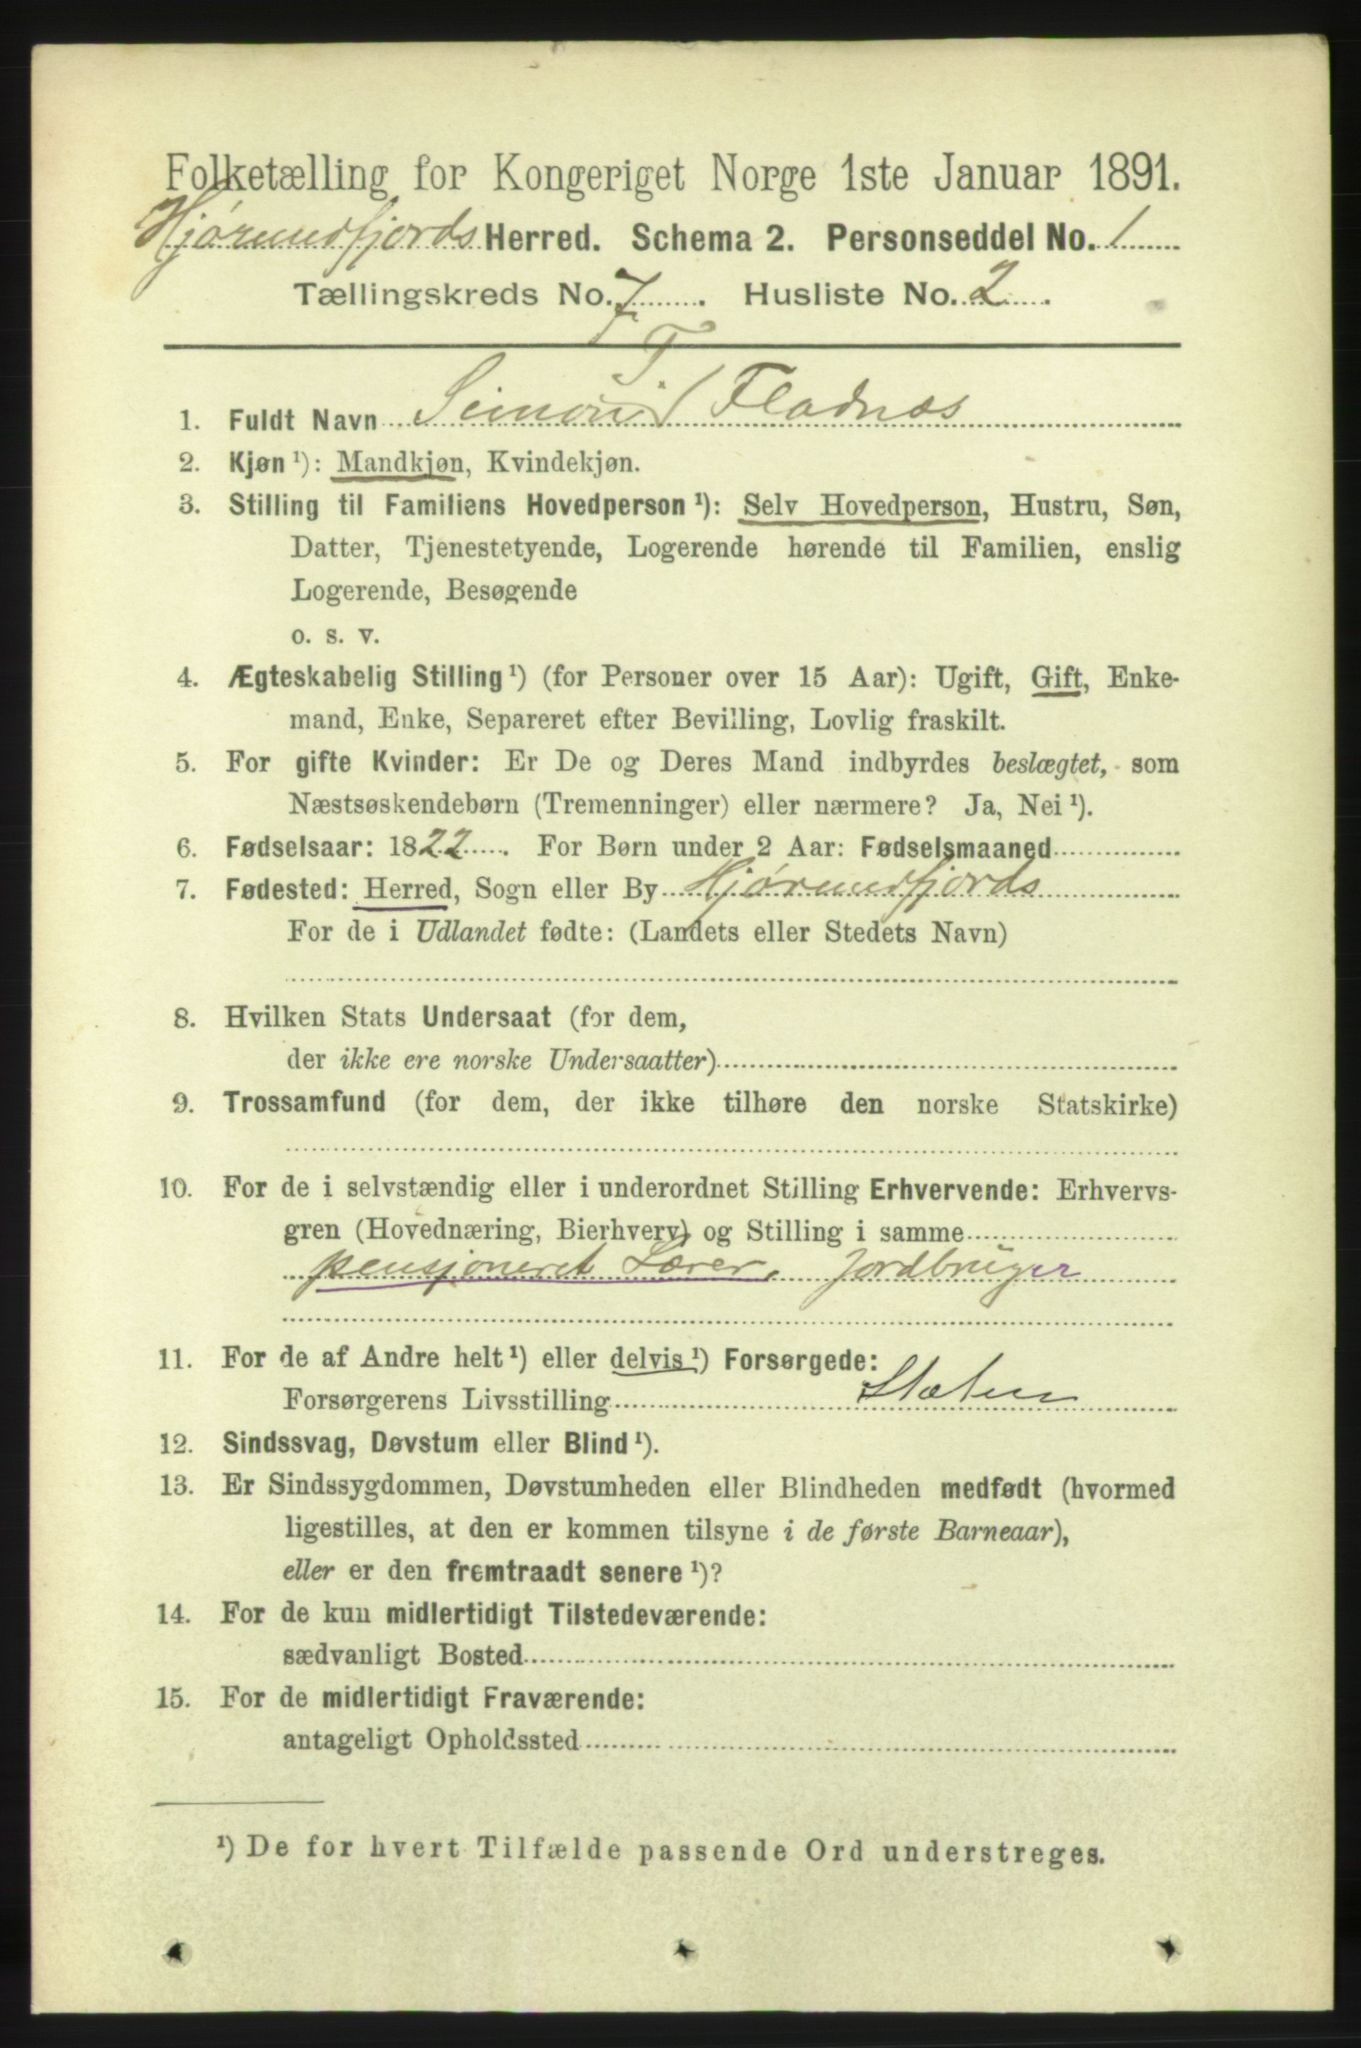 Folketælling for Kongeriget Norge 1ste Januar 1891.
Hjørundfjords Herred. Schema 2. Personseddel No. 1
Tællingskreds No. 7. Husliste No. 2.
1. Fuldt Navn Simon T. Fladnæs
2. Kjøn ¹): Mandkjøn, Kvindekjøn.
3. Stilling til Familiens Hovedperson ¹): Selv Hovedperson, Hustru, Søn,
Datter, Tjenestetyende, Logerende hørende til Familien, enslig
Logerende, Besøgende
o. s. v.
4. Ægteskabelig Stilling ¹) (for Personer over 15 Aar): Ugift, Gift, Enke-
mand, Enke, Separeret efter Bevilling, Lovlig fraskilt.
5. For gifte Kvinder: Er De og Deres Mand indbyrdes beslægtet, som
Næstsøskendebørn (Tremenninger) eller nærmere? Ja, Nei ¹).
6. Fødselsaar: 1822. For Børn under 2 Aar: Fødselsmaaned
7. Fødested: Herred, Sogn eller By Hjørundfjords
For de i Udlandet fødte: (Landets eller Stedets Navn)
8. Hvilken Stats Undersaat (for dem,
der ikke ere norske Undersaatter)
9. Trossamfund (for dem, der ikke tilhøre den norske Statskirke)
10. For de i selvstændig eller i underordnet Stilling Erhvervende: Erhvervs-
gren (Hovednæring, Bierhverv) og Stilling i samme
pensjoneret Lærer, Jordbruger
11. For de af Andre helt ¹) eller delvis ¹) Forsørgede:
Forsørgerens Livsstilling Staten
12. Sindssvag, Døvstum eller Blind ¹).
13. Er Sindssygdommen, Døvstumheden eller Blindheden medfødt (hvormed
ligestilles, at den er kommen tilsyne i de første Barneaar),
eller er den fremtraadt senere ¹)?
14. For de kun midlertidigt Tilstedeværende:
sædvanligt Bosted
15. For de midlertidigt Fraværende:
antageligt Opholdssted
¹) De for hvert Tilfælde passende Ord understreges.